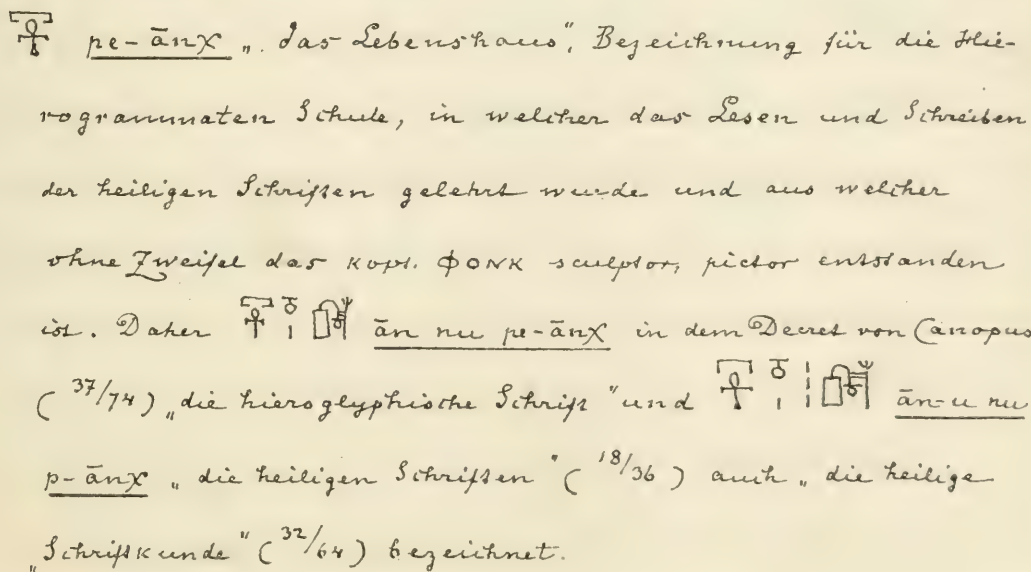 𓉐𓋹 pe-ānχ „das Lebenshaus“, Bezeichnung für die Hie-
rogrammaten Schule, in welcher das Lesen und Schreiben
der heiligen Schriften gelehrt wurde und aus welcher
ohne Zweifel das kopt. ⲫⲟⲛⲕ sculptor, pictor entstanden
ist. Daher ān nu pe-ānχ in dem Decret von Canopus
(37/74) „die hieroglyphische Schrift“ und ān-u nu
p-ānχ „die heiligen Schriften“ (18/36) auch „die heilige
„Schriftkunde“ (32/64) bezeichnet.